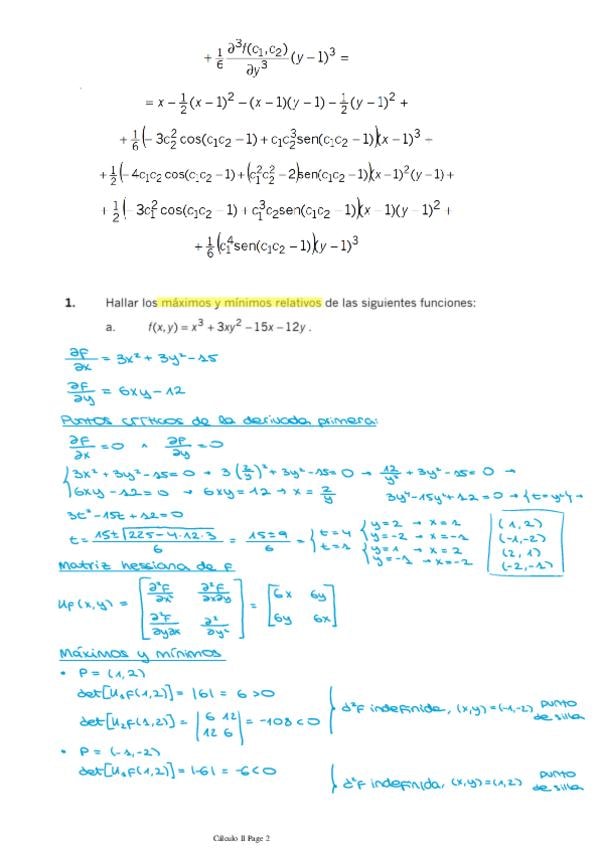 + 1/6 ∂³f(c₁,c₂)/∂y³ (y – 1)³ =
= x – 1/2 (x – 1)² – (x – 1)(y – 1) – 1/2 (y – 1)² +
+ 1/6 (– 3c₂² cos(c₁c₂ – 1) + c₁c₂³sen(c₁c₂ – 1))(x – 1)³ –
+ 1/2 (– 4c₁c₂ cos(c₁c₂ – 1) + (c₁²c₂² – 2)sen(c₁c₂ – 1))(x – 1)²(y – 1) +
+ 1/2 (– 3c₁² cos(c₁c₂ – 1) + c₁³c₂sen(c₁c₂ – 1))(x – 1)(y – 1)² +
+ 1/6 (c₁⁴sen(c₁c₂ – 1))(y – 1)³
1. Hallar los máximos y mínimos relativos de las siguientes funciones:
a. f(x,y) = x³ + 3xy² – 15x – 12y .
∂F/∂x = 3x² + 3y² – 15
∂F/∂y = 6xy – 12
Puntos críticos de la derivada primera:
∂F/∂x = 0 ^ ∂F/∂y = 0
{ 3x² + 3y² – 15 = 0 → 3(2/y)² + 3y² – 15 = 0 → 12/y² + 3y² – 15 = 0 →
6xy – 12 = 0 → 6xy = 12 → x = 2/y 3y⁴ – 15y² + 12 = 0 → {t = y²} →
3t² – 15t + 12 = 0
t = 15±√225–4·12·3 / 6 = 15±9 / 6 = { t = 4 t = 1 { y = 2 → x = 1 y = –2 → x = –1 { y = 1 → x = 2 y = –1 → x = –2 (1,2) (-1,-2) (2,1) (-2,-1)
Matriz hessiana de F
HF(x,y) = [ ∂²F/∂x² ∂²F/∂x∂y ∂²F/∂y∂x ∂²/∂y² ] = [ 6x 6y 6y 6x ]
Máximos y mínimos
• P = (1,2)
det[H₁F(1,2)] = |6| = 6 > 0
det[H₂F(1,2)] = |6 12 12 6| = –108 < 0 } d²F indefinida, (x,y) = (-1,-2) punto de silla
• P = (-1,-2)
det[H₁F(1,2)] = |-6| = -6 < 0 } d²F indefinida, (x,y) = (1,2) punto de silla
Cálculo II Page 2